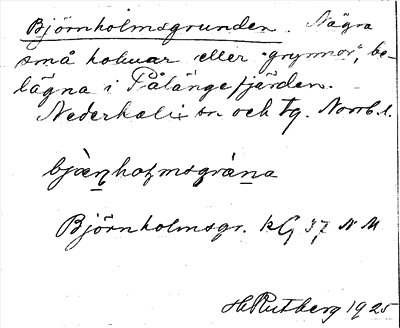 Björnholmsgrunden. Några
små holmar eller "grynnor", be-
lägna i Pålängefjärden.
Nederkalix sn. och tg. Norrb. l.
bjæ̀n̠hoɫmsgràn̠a
Björnholmsgr. kG 37 N M
H. Rutberg 1925